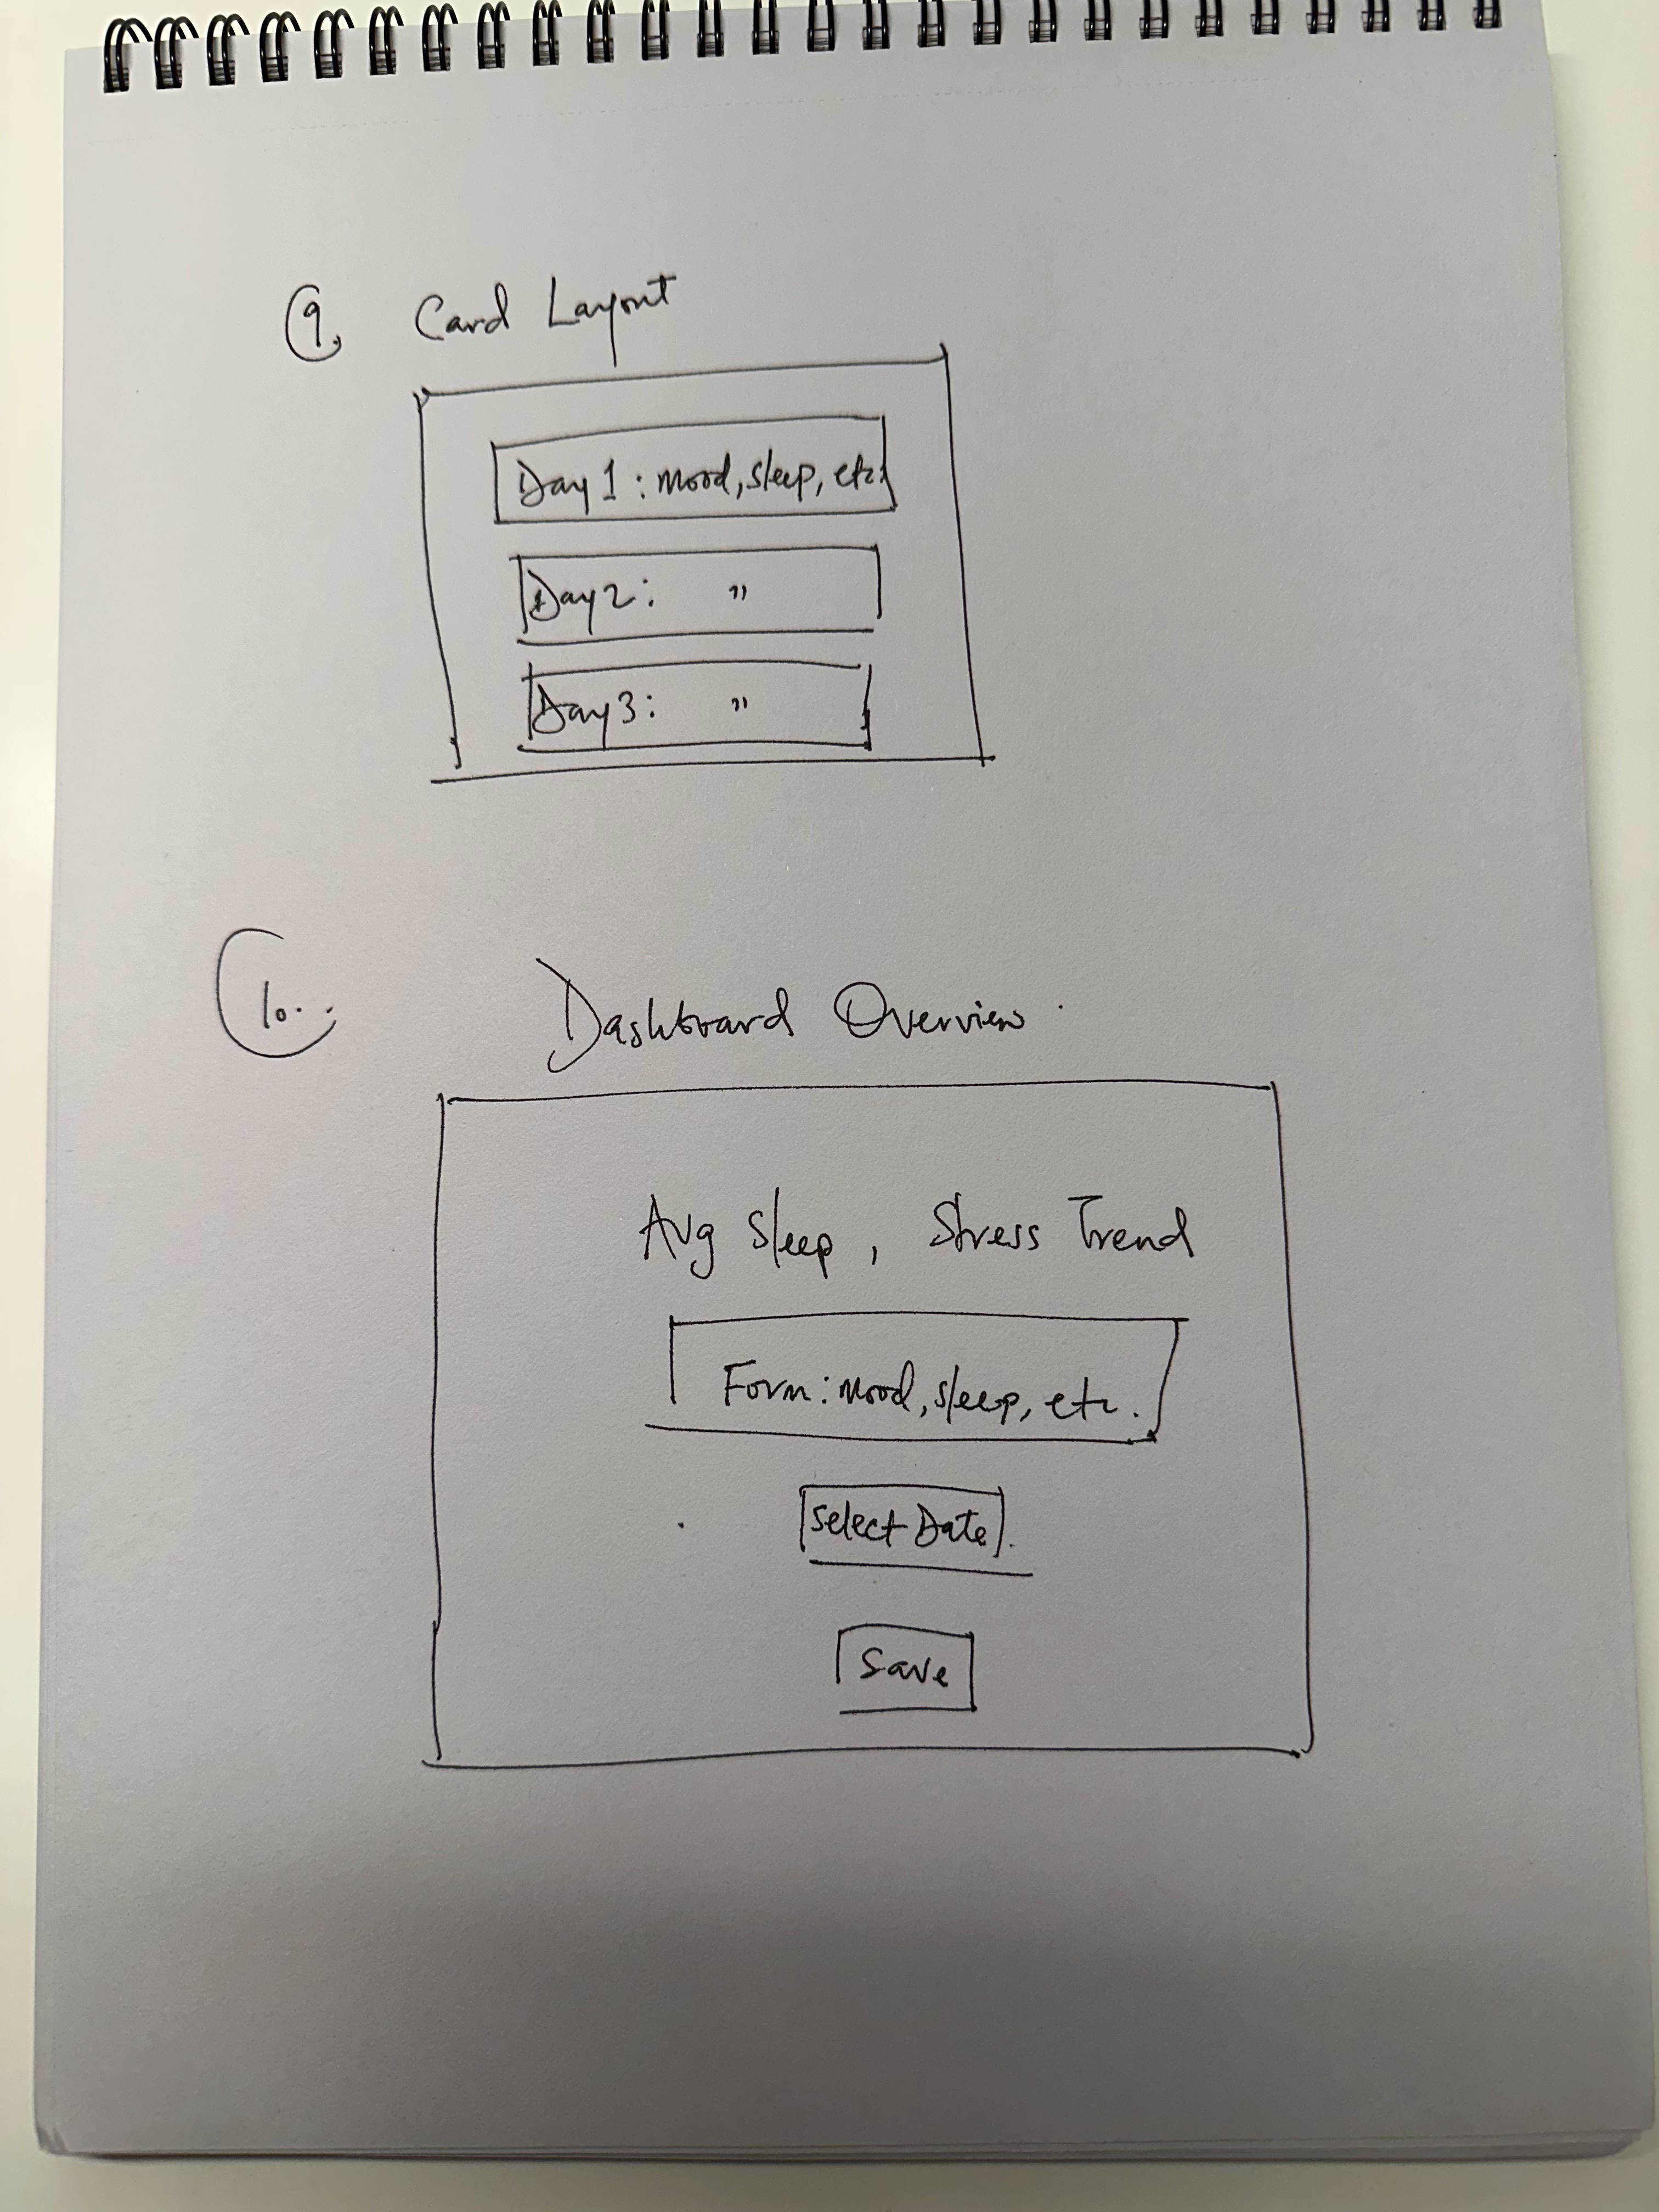 9. Card Layout
Day 1 : mood, sleep, etc.
Day 2 : "
Day 3 : "
10. Dashboard Overview
Avg Sleep , Stress Trend
Form : mood, sleep, etc.
Select Date
Save